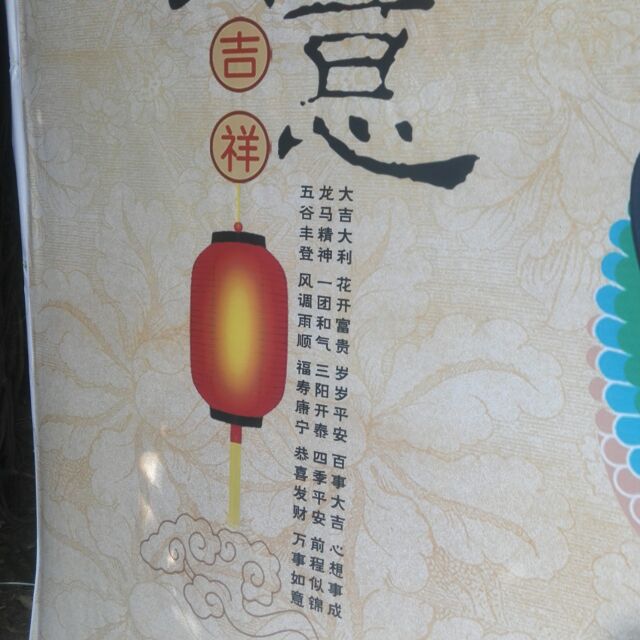 意
吉祥
大吉大利 花开富贵 岁岁平安 百事大吉 心想事成
龙马精神 一团和气 三阳开泰 四季平安 前程似锦
五谷丰登 风调雨顺 福寿康宁 恭喜发财 万事如意